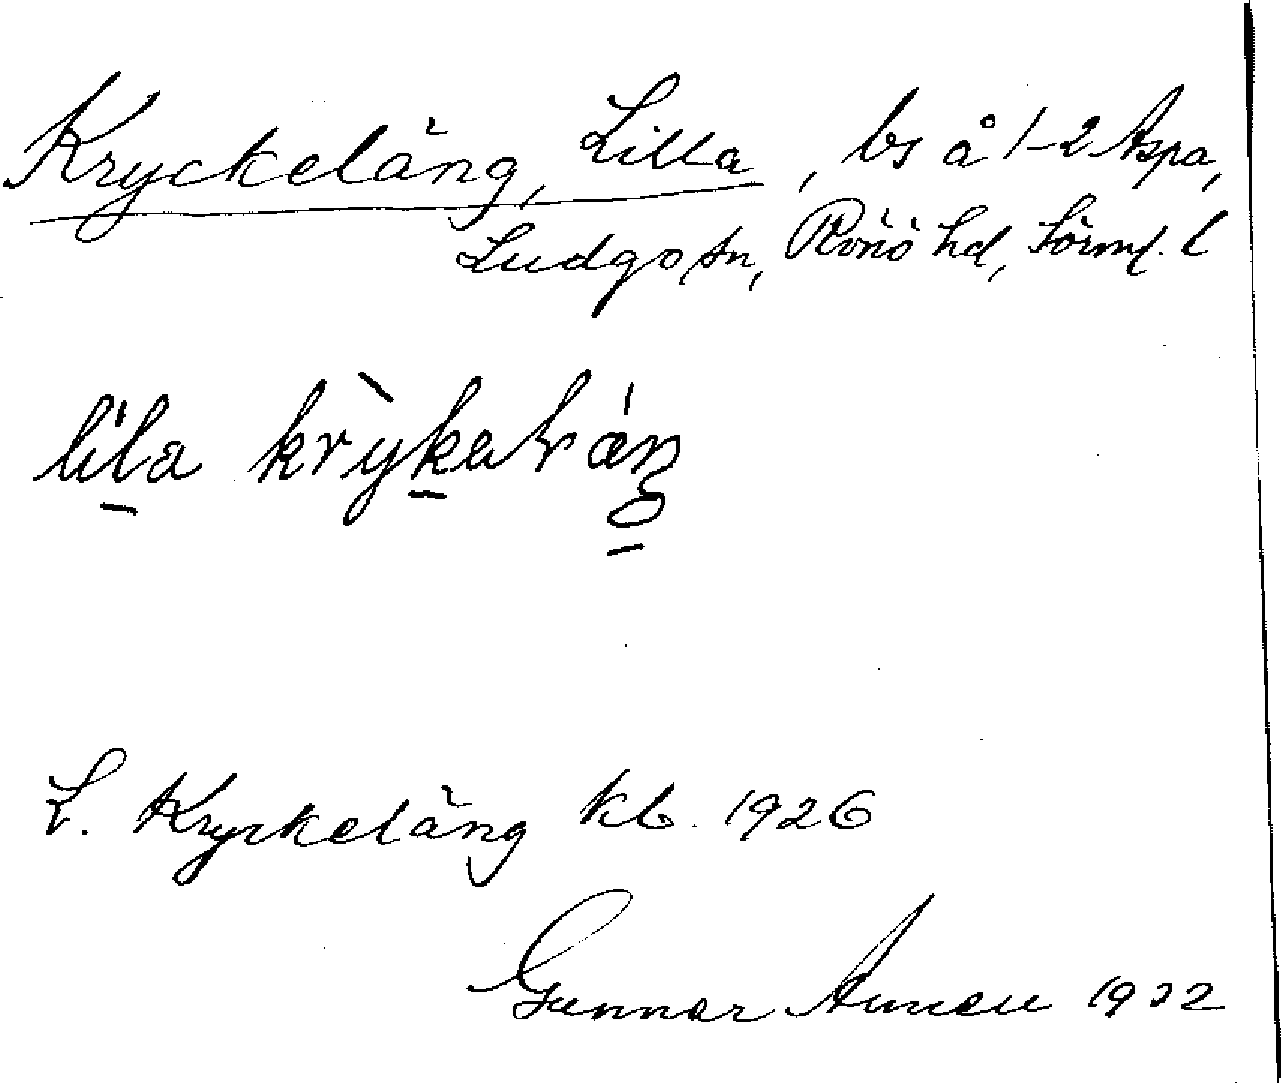 Kryckeläng, Lilla, bs å 1-2 Aspa,
Ludgo sn, Rönö hd, Sörml. l
lila krỳkaläŋ
L. Kryckeläng kb. 1926
Gunnar 1932